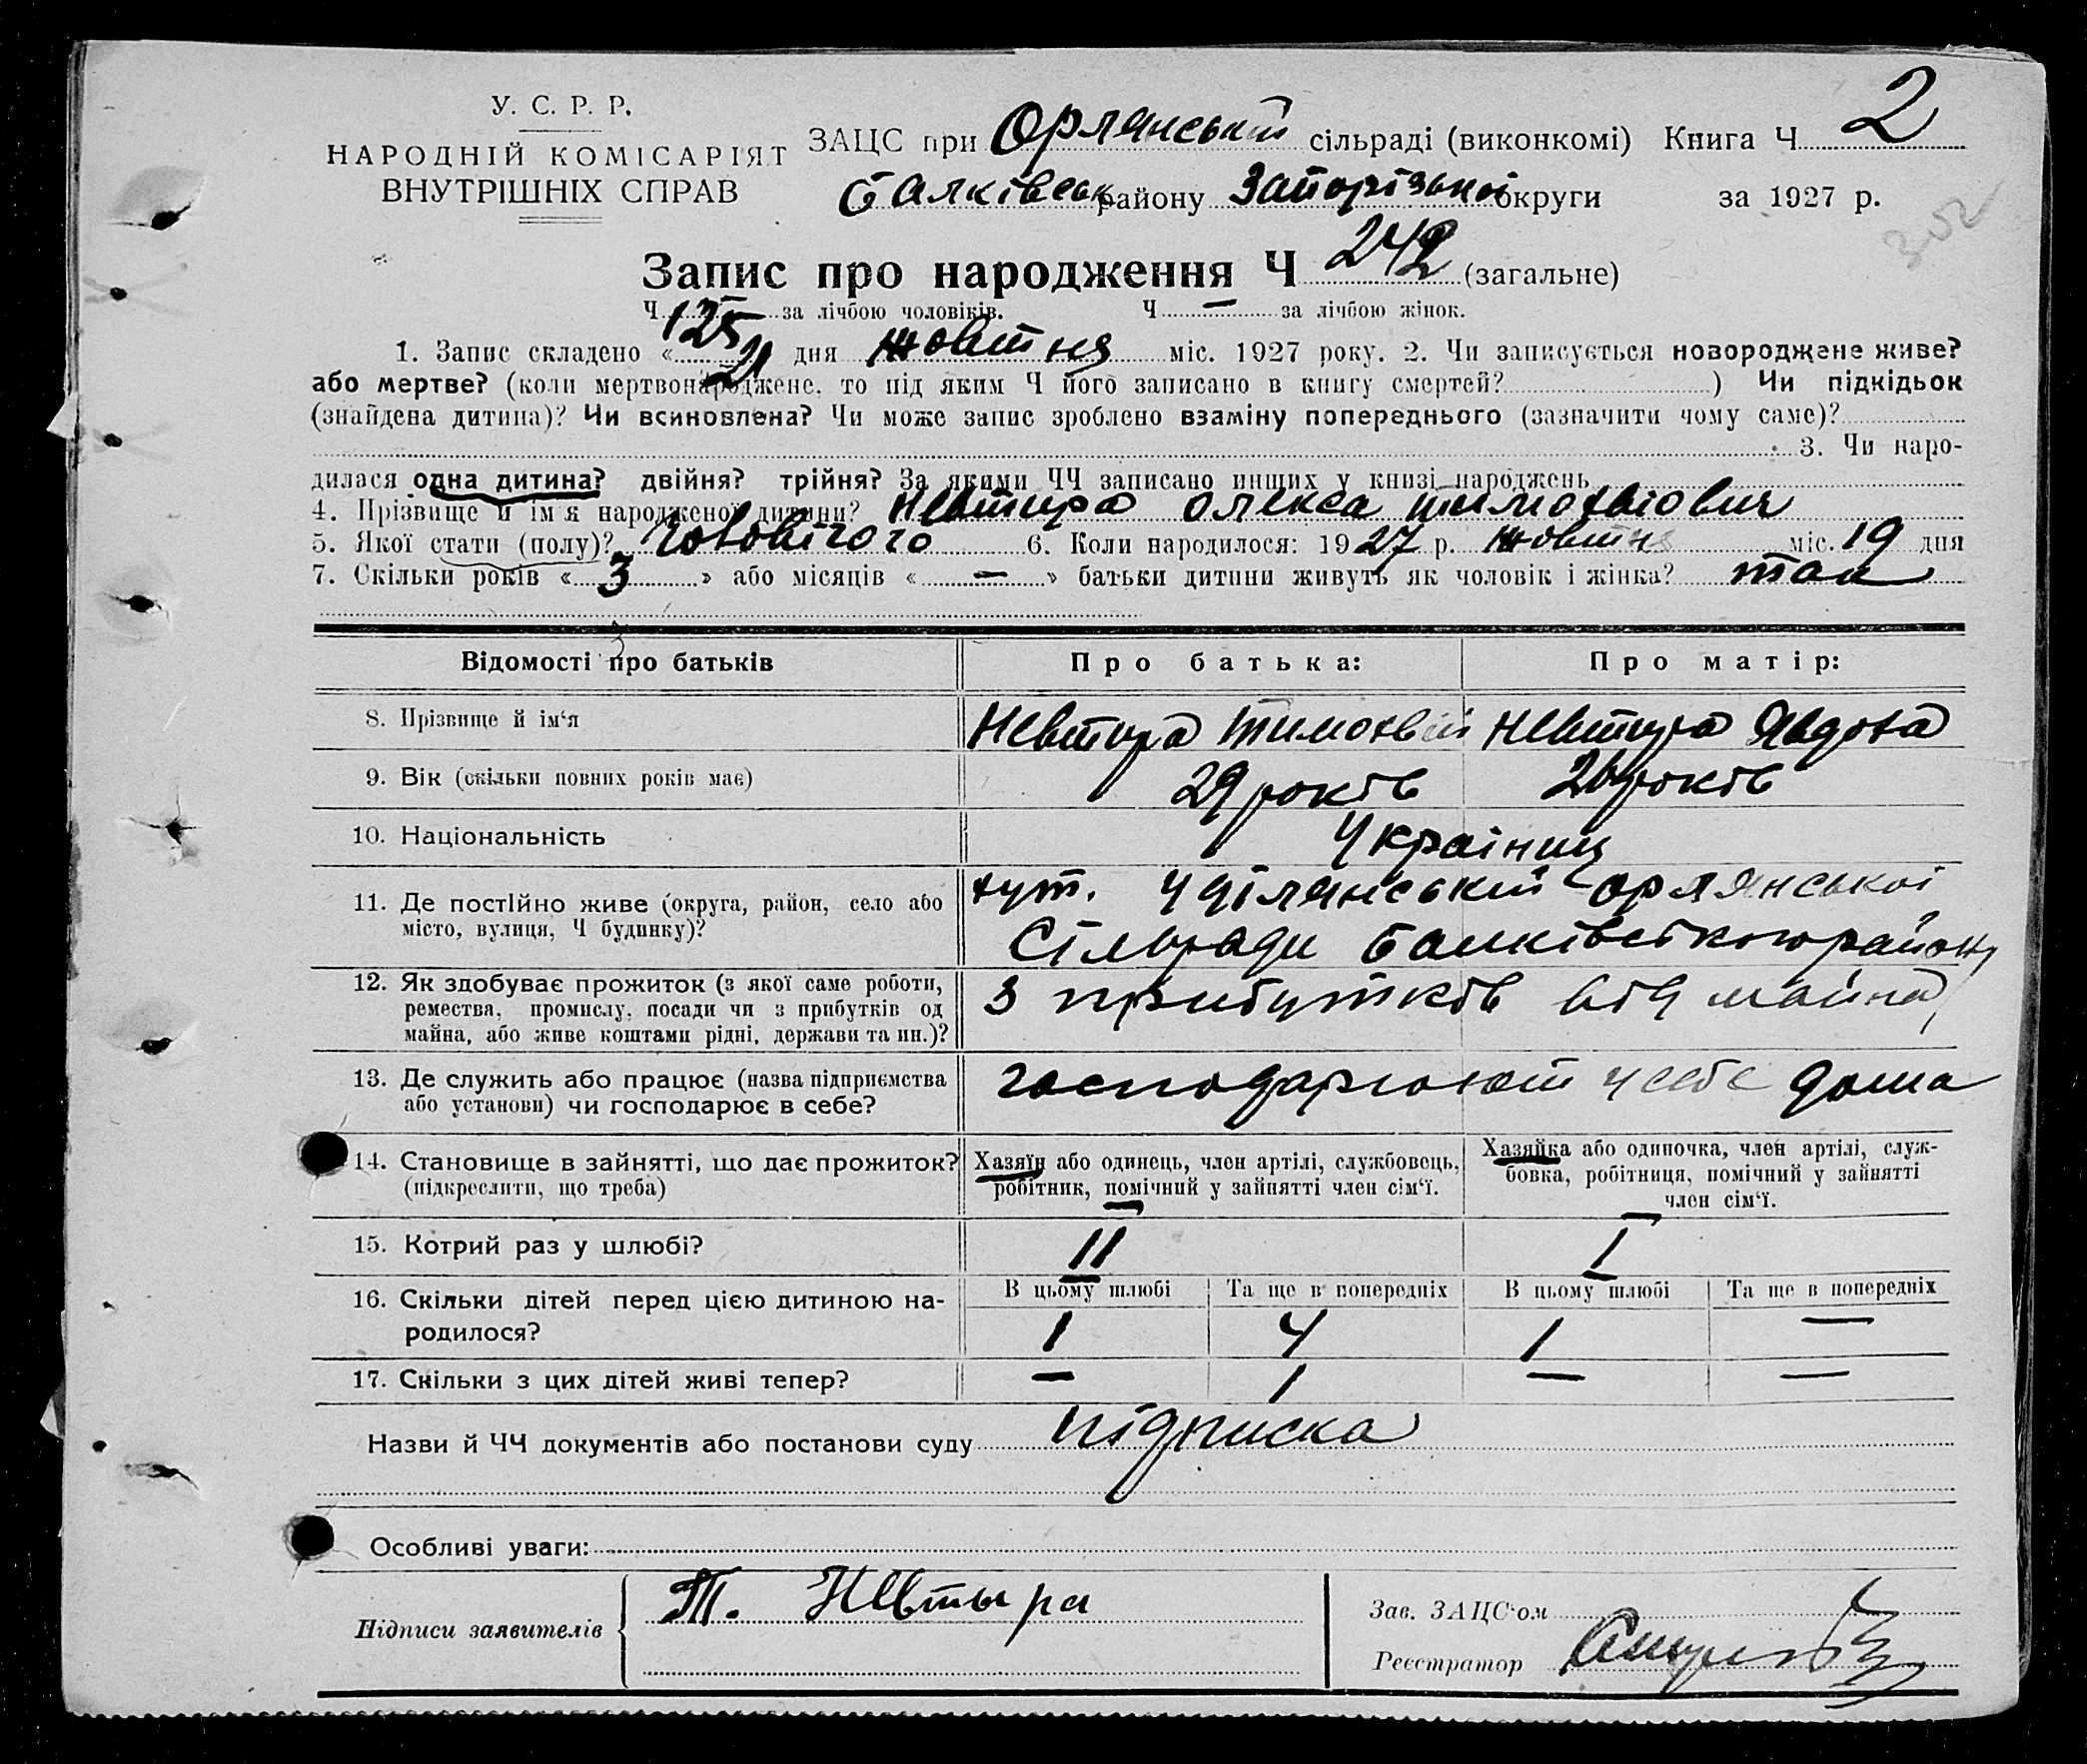 У. С. Р. Р.
НАРОДНІЙ КОМІСАРІЯТ
ВНУТРІШНІХ СПРАВ
ЗАЦС при Орлянській сільраді (виконкомі) Книга Ч 2
Балківськ району Запорізької округи за 1927 р.
302
Запис про народження Ч 242 (загальне)
Ч 125 за лічбою чоловіків. Ч — за лічбою жінок.
1. Запис складено « 21 дня жовтня міс. 1927 року. 2. Чи записується новороджене живе?
або мертве? (коли мертвонароджене, то під яким Ч його записано в книгу смертей? ) Чи підкідьок
(знайдена дитина)? Чи всиновлена? Чи може запис зроблено взаміну попереднього (зазначити чому саме)?
3. Чи наро-
дилася одна дитина? двійня? трійня? За якими ЧЧ записано инших у книзі народжень
4. Прізвище й ім'я народженої дитини? Невтира Олекса Тимохвіович
5. Якої стати (полу)? Чоловічого 6. Коли народилося: 1927 р. жовтня міс. 19 дня
7. Скільки років « 3 » або місяців « — » батьки дитини живуть як чоловік і жінка? так
Відомості про батьків Про батька: Про матір:
8. Прізвище й ім'я Невтира Тимохвій Невтира Явдоха
9. Вік (скільки повних років має) 29 років років
10. Національність Українці
11. Де постійно живе (округа, район, село або
місто, вулиця, Ч будинку)?
хут. Уділянський Орлянської
Сільради Балківського району
12. Як здобуває прожиток (з якої саме роботи,
ремества, промислу, посади чи з прибутків од
майна, або живе коштами рідні, держави та ин.)?
З прибутків від майна
13. Де служить або працює (назва підприємства
або установи) чи господарює в себе?
господарюют у себе дома
14. Становище в зайнятті, що дає прожиток?
(підкреслити, що треба)
Хазяїн або одинець, член артілі, службовець,
робітник, помічний у зайнятті член сім'ї.
Хазяйка або одиночка, член артілі, служ-
бовка, робітниця, помічний у зайнятті
член сім'ї.
15. Котрий раз у шлюбі? II I
16. Скільки дітей перед цією дитиною на-
родилося?
В цьому шлюбі Та ще в попередніх В цьому шлюбі Та ще в попередніх
1 4 1 —
17. Скільки з цих дітей живі тепер? — 1 — —
Назви й ЧЧ документів або постанови суду підписка
Особливі уваги:
Підписи заявителів Т. Невтыра
Зав. ЗАЦС'ом
Реєстратор